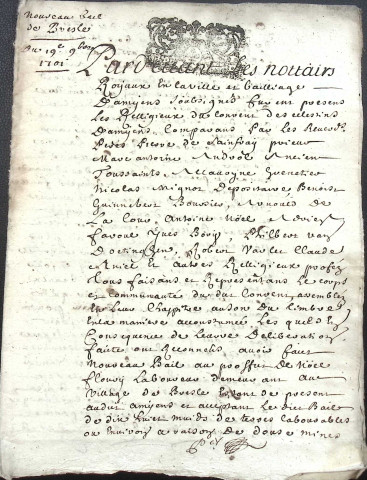 Nouveau bail
de Bresle
Du 19e 9bre
1701
Pardevant les nottairs
Royaux en la ville et bailliage
Damyens soubsignez furent presens
Les Relligieux du Convent des celestins
Damyens, Comparans Par Les Reverds
Peres Pierre de prieur
Marc antoine Ancien
Toussaints
Nicolas Mignot Depositaire Benoist
Boussin,
La Cour Antoine Noël Adrien
favoue Yves Philbert van
Robert Varlet Claude
et autres Relligieux profez
Tous faisans et Representans le corps
et communauté du dit Convent assemblez
en Leur Chapitre au son du timbre
en la maniere accoustumée Les quels en
Consequence de Leurs Deliberations
faite ont Reconnus avoir fait
Nouveau Bail au proffit de Noël
fleury Laboureur demeurant au
village de Bresle Estant de present
audit amyens et acceptant Le dit Bail
de dix huit muids de terres labourables
ou environ a raison de douze mines